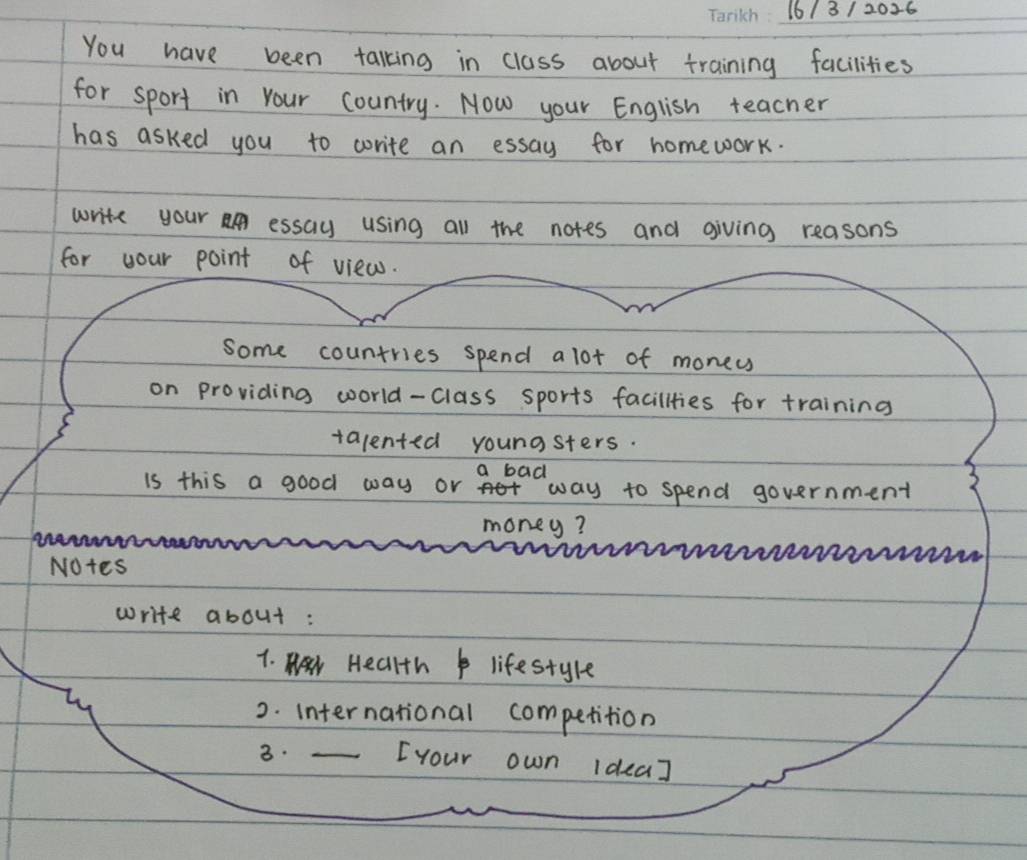 Tarikh : 16/3/2026
You have been talking in class about training facilities
for sport in your country. Now your English teacher
has asked you to write an essay for homework.
write your essay using all the notes and giving reasons
for your point of view.
Some countries spend a lot of money
on providing world-class sports facilities for training
talented youngsters.
Is this a good way or a bad way to spend government
money?
Notes
write about :
1. Health & lifestyle
2. International competition
3. — [Your own idea]